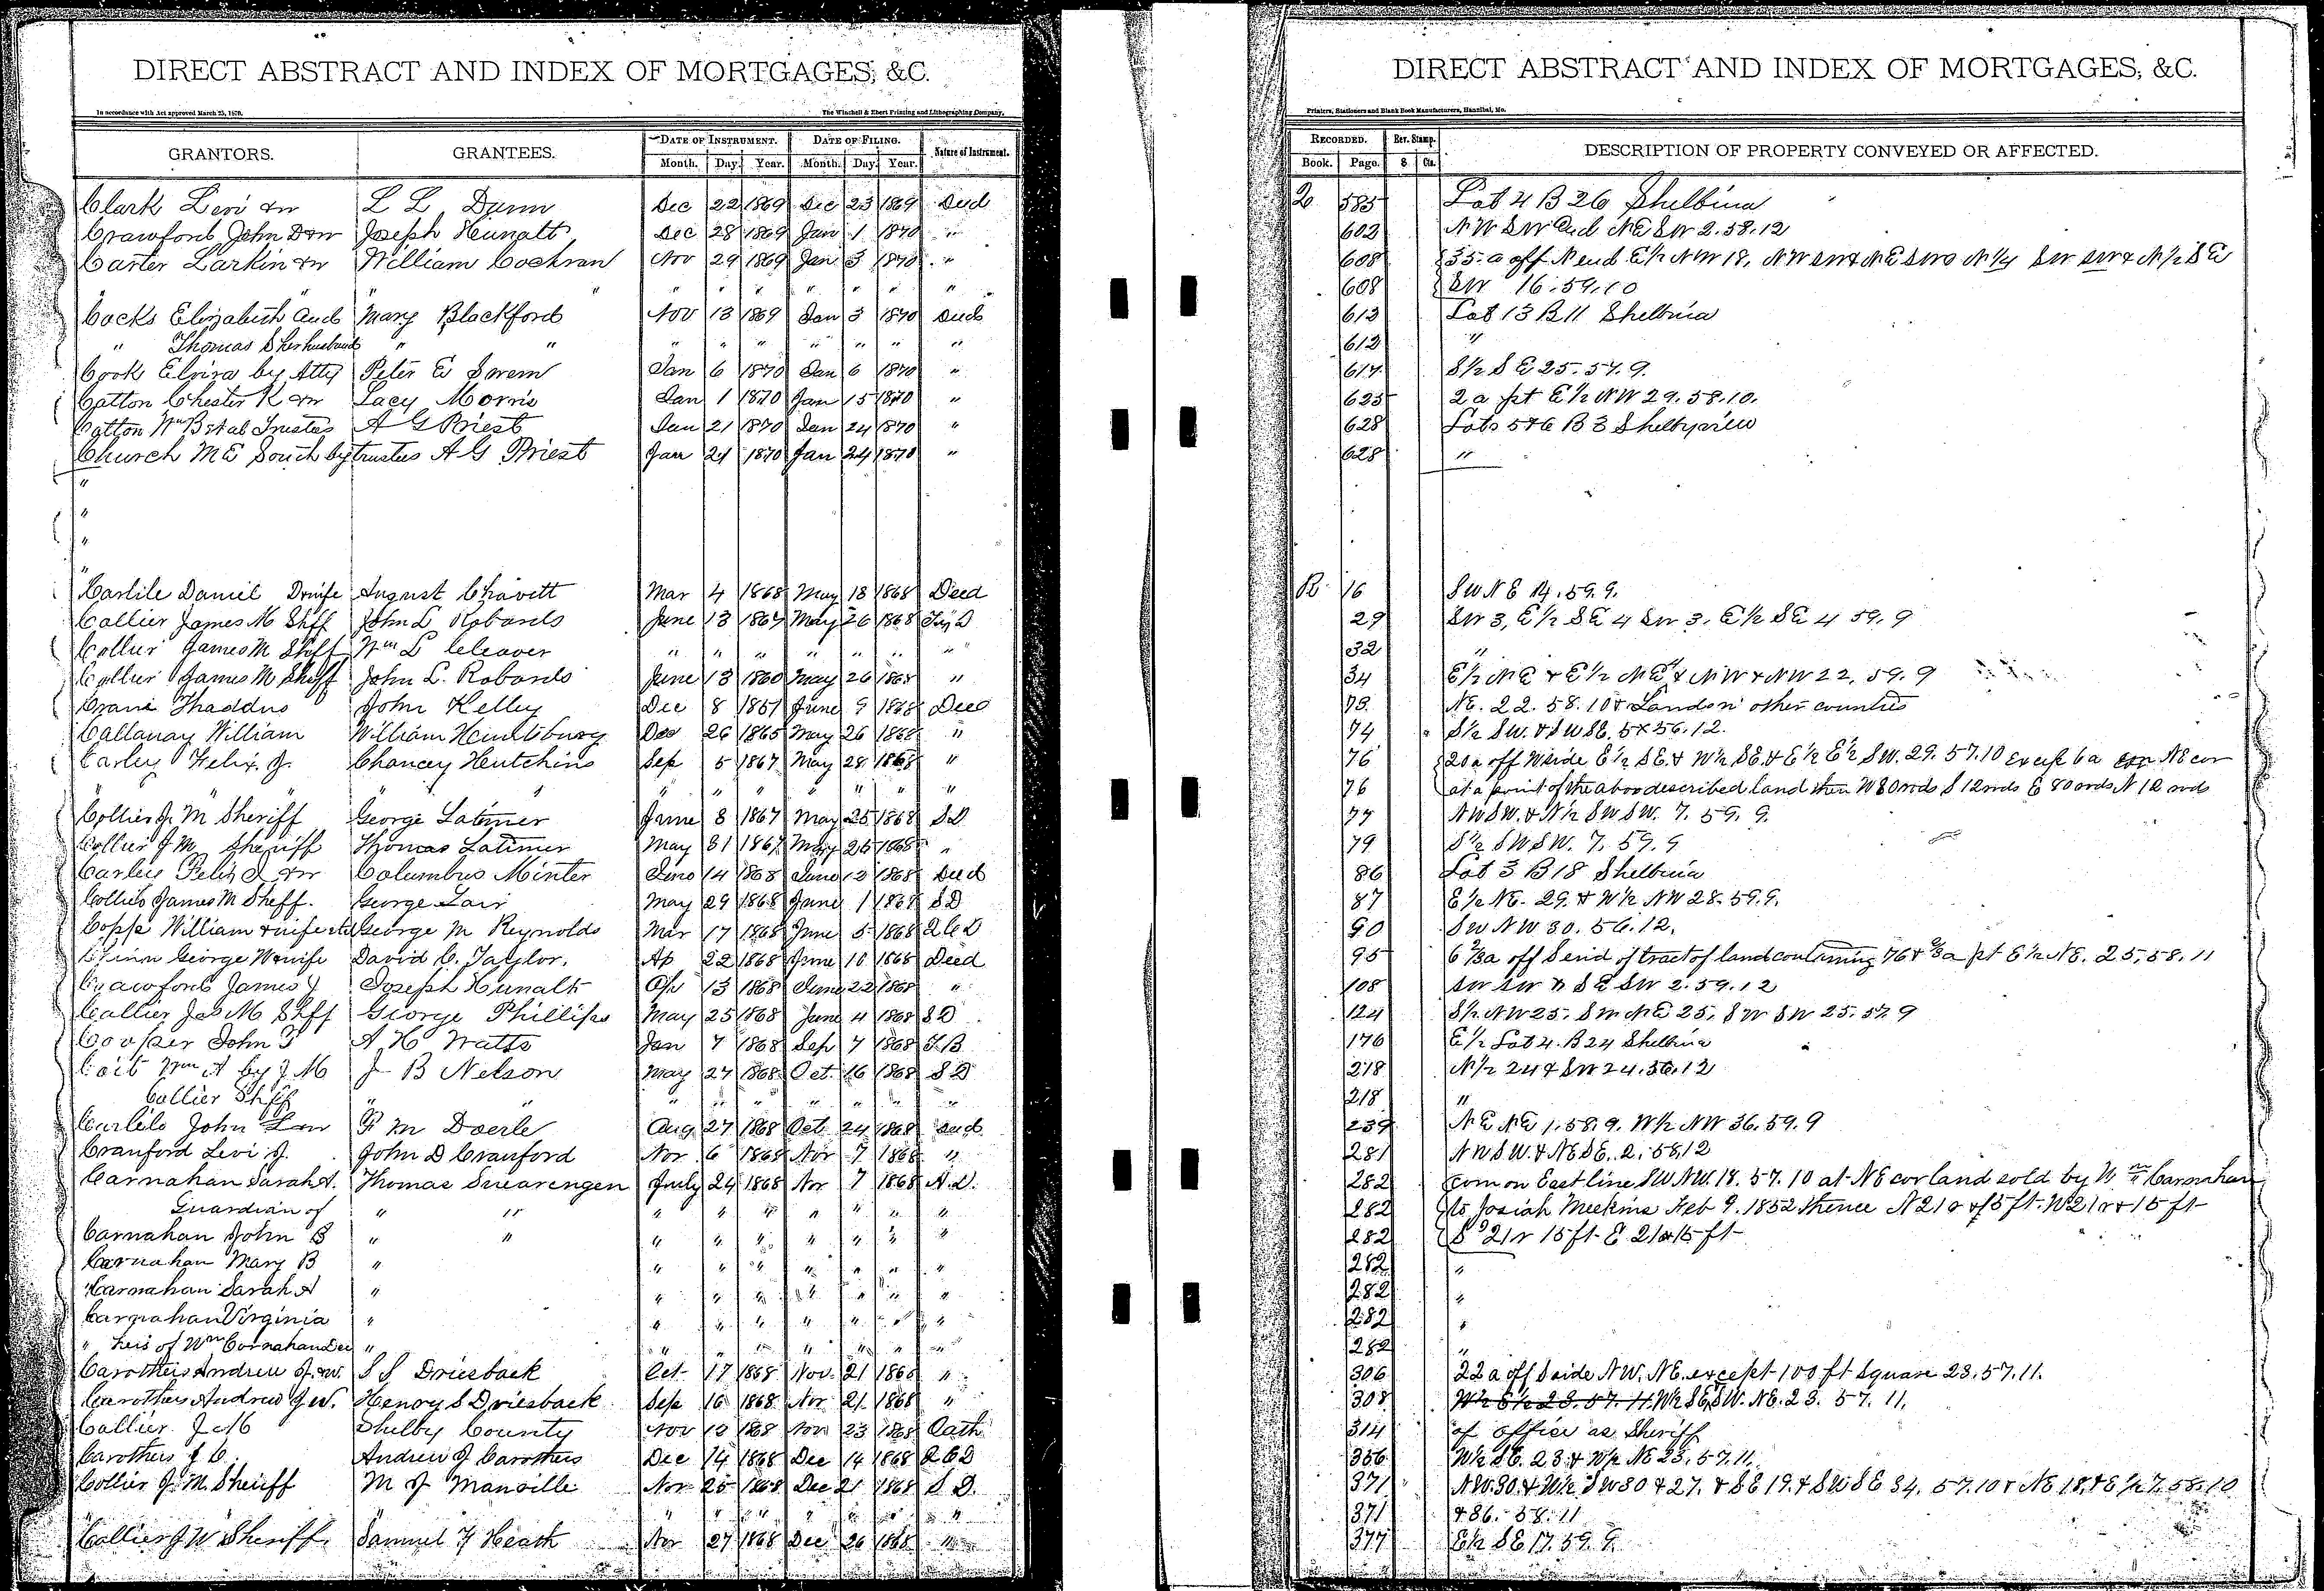 DIRECT ABSTRACT AND INDEX OF MORTGAGES, &C.
In accordance with Act approved March 25, 1870. The Winchell & Ebert Printing and Lithographing Company,
GRANTORS. GRANTEES. DATE OF INSTRUMENT. DATE OF FILING. Nature of Instrument.
Month. Day. Year. Month. Day. Year.
Clark Levi &w L L Dunn Dec 22 1869 Dec 23 1869 Deed
Crawford John D &w Joseph Hunalt Dec 28 1869 Jan 1 1870 "
Carter Larkin &w William Cochran Nov 29 1869 Jan 3 1870 "
" " " " " " " " "
Cocks Elizabeth and Mary Blackford Nov 13 1869 Jan 3 1870 Deed
" Thomas S her husband " " " " " " " " "
Cook Elvira by Atty Peter E Sworn Jan 6 1870 Jan 6 1870 "
Cotton Chester K &w Lacy Morris Jan 1 1870 Jan 15 1870 "
Cotton Wm B et al Trustees A G Priest Jan 21 1870 Jan 24 1870 "
Church M E South by trustees A G Priest Jan 21 1870 Jan 24 1870 "
"
"
"
"
Carlile Daniel & wife August Chavitt Mar 4 1868 May 18 1868 Deed
Collier James M Shff John L Robards June 13 1867 May 26 1868
Collier James M Shff Wm L Cleaver " " " " " " "
Collier James M Sheff John L. Robards June 13 1860 May 26 1868 "
Crane Thaddus John Kelley Dec 8 1857 June 9 1868 Deed
Callanay William William Dec 26 1865 May 26 1868 "
Carley Felix J. Chancy Hutchins Sep 5 1867 May 28 1868 "
" " " " " " " "
Collier J. M Sheriff George Latimer June 8 1867 May 25 1868 S D
Collier J M Sheriff Thomas Latimer May 31 1867 May 25 1868 "
Carley Felix J &w Columbus Minter June 14 1868 June 12 1868 Deed
Collier James M Sheff. George Lair May 29 1868 June 1 1868 S D
Copps William & wife George M Reynolds Mar 17 1868 June 5 1868 Q C D
George W & wife David C. Taylor. Ap 22 1868 June 10 1868 Deed
Crawford James J Joseph Hunalt Apr 13 1868 June 22 1868 "
Collier Jas M Shff George Phillips May 25 1868 June 4 1868 S D
Cooper John T A H Watts Jan 7 1868 Sep 7 1868
Coit Wm A by J M J B Nelson May 27 1868 Oct. 16 1868 S D
Collier Shff " " " " " " " " "
Carlile John F M Doerle Aug 27 1868 Oct 24 1868 Deed
Cranford Levi J. John D Cranford Nov 6 1868 Nov 7 1868 "
Carnahan Sarah A. Thomas Swearengen July 24 1868 Nov 7 1868
Guardian of " " " " " " " " "
Carnahan John B " " " " " " " " "
Carnahan Mary B " " " " " " " "
Carnahan Sarah A " " " " " " " "
Carnahan Virginia " " " " " " " "
" heis of Wm Carnahan Dec " " " " " " " "
Carothers Andrew J. &w. S S Driesback Oct 17 1868 Nov. 21 1868 "
Carothers Andrew J W. Henry S Driesback Sep 16 1868 Nov 21 1868 "
Collier J M Shelby County Nov 13 1868 Nov 23 1868 Oath
Carothers J C. Andrew J Carothers Dec 14 1868 Dec 14 1868 Q C D
Collier J. M. Sheriff M J Manville Nov 25 1868 Dec 21 1868 S D.
" " " " " " " "
Collier J W Sheriff. Samuel Y Heath Nov 27 1868 Dec 26 1868 "
DIRECT ABSTRACT AND INDEX OF MORTGAGES, &C.
Printers, Stationers and Blank Book Manufacturers, Hannibal, Mo.
RECORDED. Rev. Stamp. DESCRIPTION OF PROPERTY CONVEYED OR AFFECTED.
Book. Page. $ Cts.
Q 585 Lot 4 B 26 Shelbina
602 NW SW and NE SW 2.58.12
608 35 a off N end E½ NW 18, NW SW & NE SW N¼ SW SW & N½ SE
608 SW 16.59.10
613 Lot 13 B 11 Shelbina
613 "
617 S½ SE 25.57.9.
625 2 a pt E½ NW 29.58.10.
628 Lots 5&6 B 3 Shelbyville
628 "
R 16 SW NE 14.59.9.
29 SW 3, E½ SE 4 SW 3, E½ SE 4 59.9
32 "
34 E½ NE & E½ NE & NW & NW 22, 59.9
73 NE. 22. 58.10 & Land in other counties
74 S½ SW. & SW SE. 5 56.12.
76 20 a off W side E½ SE. & W½ SE. & E½ E½ SW. 29. 57.10 except 6 a NE cor
76 at a point of the above described land then W 80 rods S 12 rods E 80 rods N 12 rods
77 NW SW. & N½ SW SW. 7. 59. 9.
79 S½ SW SW. 7. 59. 9
86 Lot 3 B 18 Shelbina
87 E½ NE. 29. & W½ NW 28. 59.9.
90 SW NW 30. 56.12.
95 6⅔ a off S end of tract of land containing 76 & ⅔ a pt E½ NE. 25.58.11
108 SW SW & SE SW 2.59.12
124 S½ NW 25. SW NE 25, SW SW 25.57.9
176 E½ Lot 4. B 24 Shelbina
218 N½ 24 & SW 24.56.12
218 "
239 NE NE 1.58.9. W½ NW 36.59.9
281 NW SW. & NE SE. 2.58.12
282 com on East line SW NW. 18. 57.10 at NE cor land sold by Wm Carnahan
282 to Josiah Meekins Feb 9. 1852 thence N 21 r & 15 ft. W 21 r & 15 ft
282 S 21 r 15 ft E 21 & 15 ft
282 "
282 "
282 "
282 "
306 22 a off S side NW. NE. except 100 ft square 23.57.11.
308 W½ E½ 23. 57. 11. W½ SE & SW. NE. 23. 57. 11.
314 of office as Sheriff
356 W½ SE. 23 & W½ NE 23.57.11.
371 NW. 30. & W½ SW 30 & 27. & SE 19. & SW SE 34. 57.10 & NE 18. & E½ 7.58.10
371 & 36. 58. 11
377 E½ SE 17. 59. 9.